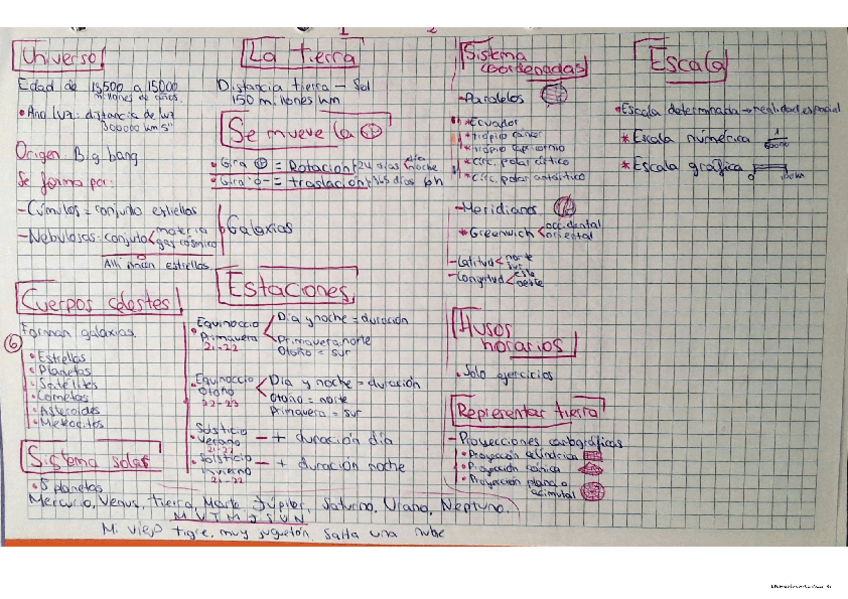 1 2
Universo
Edad de 13500 a 15000
millones de años
• Año luz: distancia de luz
300000 km s"
Origen: Big bang
Se forma por:
- Cúmulos = conjunto estrellas
- Nebulosas: conjuto materia
gas cósmico
Galaxias
Allí nacen estrellas
Cuerpos celestes
Forman galaxias
6
• Estrellas
• Planetas
• Satélites
• Cometas
• Asteroides
• Meteoritos
Sistema solar
• 8 planetas
Mercurio, Venus, Tierra, Marte Júpiter, Saturno, Urano, Neptuno.
M V T M J S U N
M. viejo tigre, muy juguetón, salta una nube
La tierra
Distancia tierra - Sol
150 millones km
Se mueve la
• Gira = Rotación 24 días día
noche
• Gira = traslación 365 días 6h
Estaciones
Equinoccio
• Primavera
21-22
Dia y noche = duración
Primavera norte
Otoño = sur
Equinoccio
• Otoño
22-23
Dia y noche = duración
Otoño = norte
Primavera = sur
Solsticio
• Verano
21-22
- + duración día
• Solsticio
invierno
21-22
- + duración noche
Sistema
coordenadas
- Paralelos
* Ecuador
* trópico cáncer
* trópico capricornio
* círc. polar ártico
* círc. polar antártico
- Meridianos
* Greenwich occidental
oriental
- Latitud norte
sur
- Longitud este
oeste
Husos
horarios
• Solo ejercicios
Representar tierra
- Proyecciones cartográficas
• Proyección cilíndrica
• Proyección cónica
• Proyección plana o
acimutal
Escala
• Escala determinada → realidad espacial
* Escala numérica 1
* Escala gráfica
0